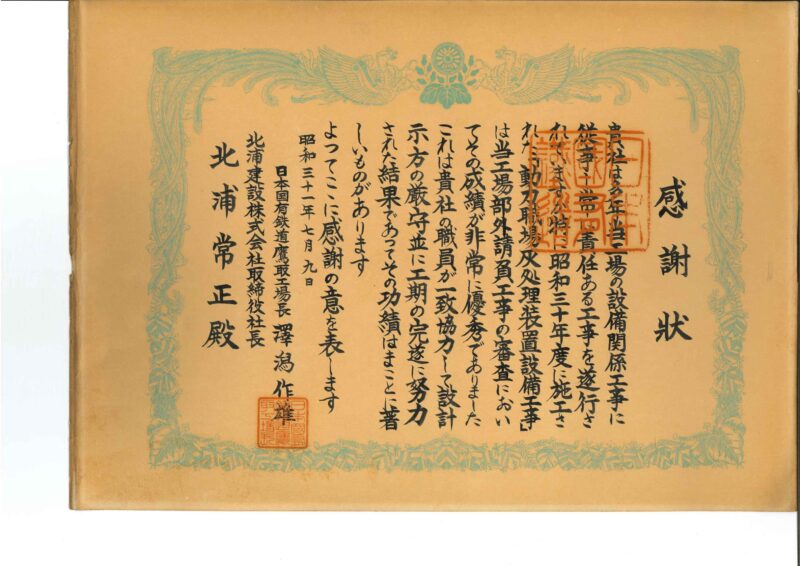 感謝状
貴社は多年当工場の設備関係工事に
従事し常に責任ある工事を遂行さ
れておりますが特に昭和三十年度に施工さ
れた「動力職場灰処理装置設備工事」
は当工場部外請負工事の審査におい
てその成績が非常に優秀でありました
これは貴社の職員が一致協力して設計
示方の厳守並に工期の完遂に努力
された結果であつてその功績はまことに著
しいものがあります
よつてここに感謝の意を表します
昭和三十一年七月九日
日本国有鉄道鷹取工場長 澤潟作雄
北浦建設株式会社取締役社長
北浦常正殿